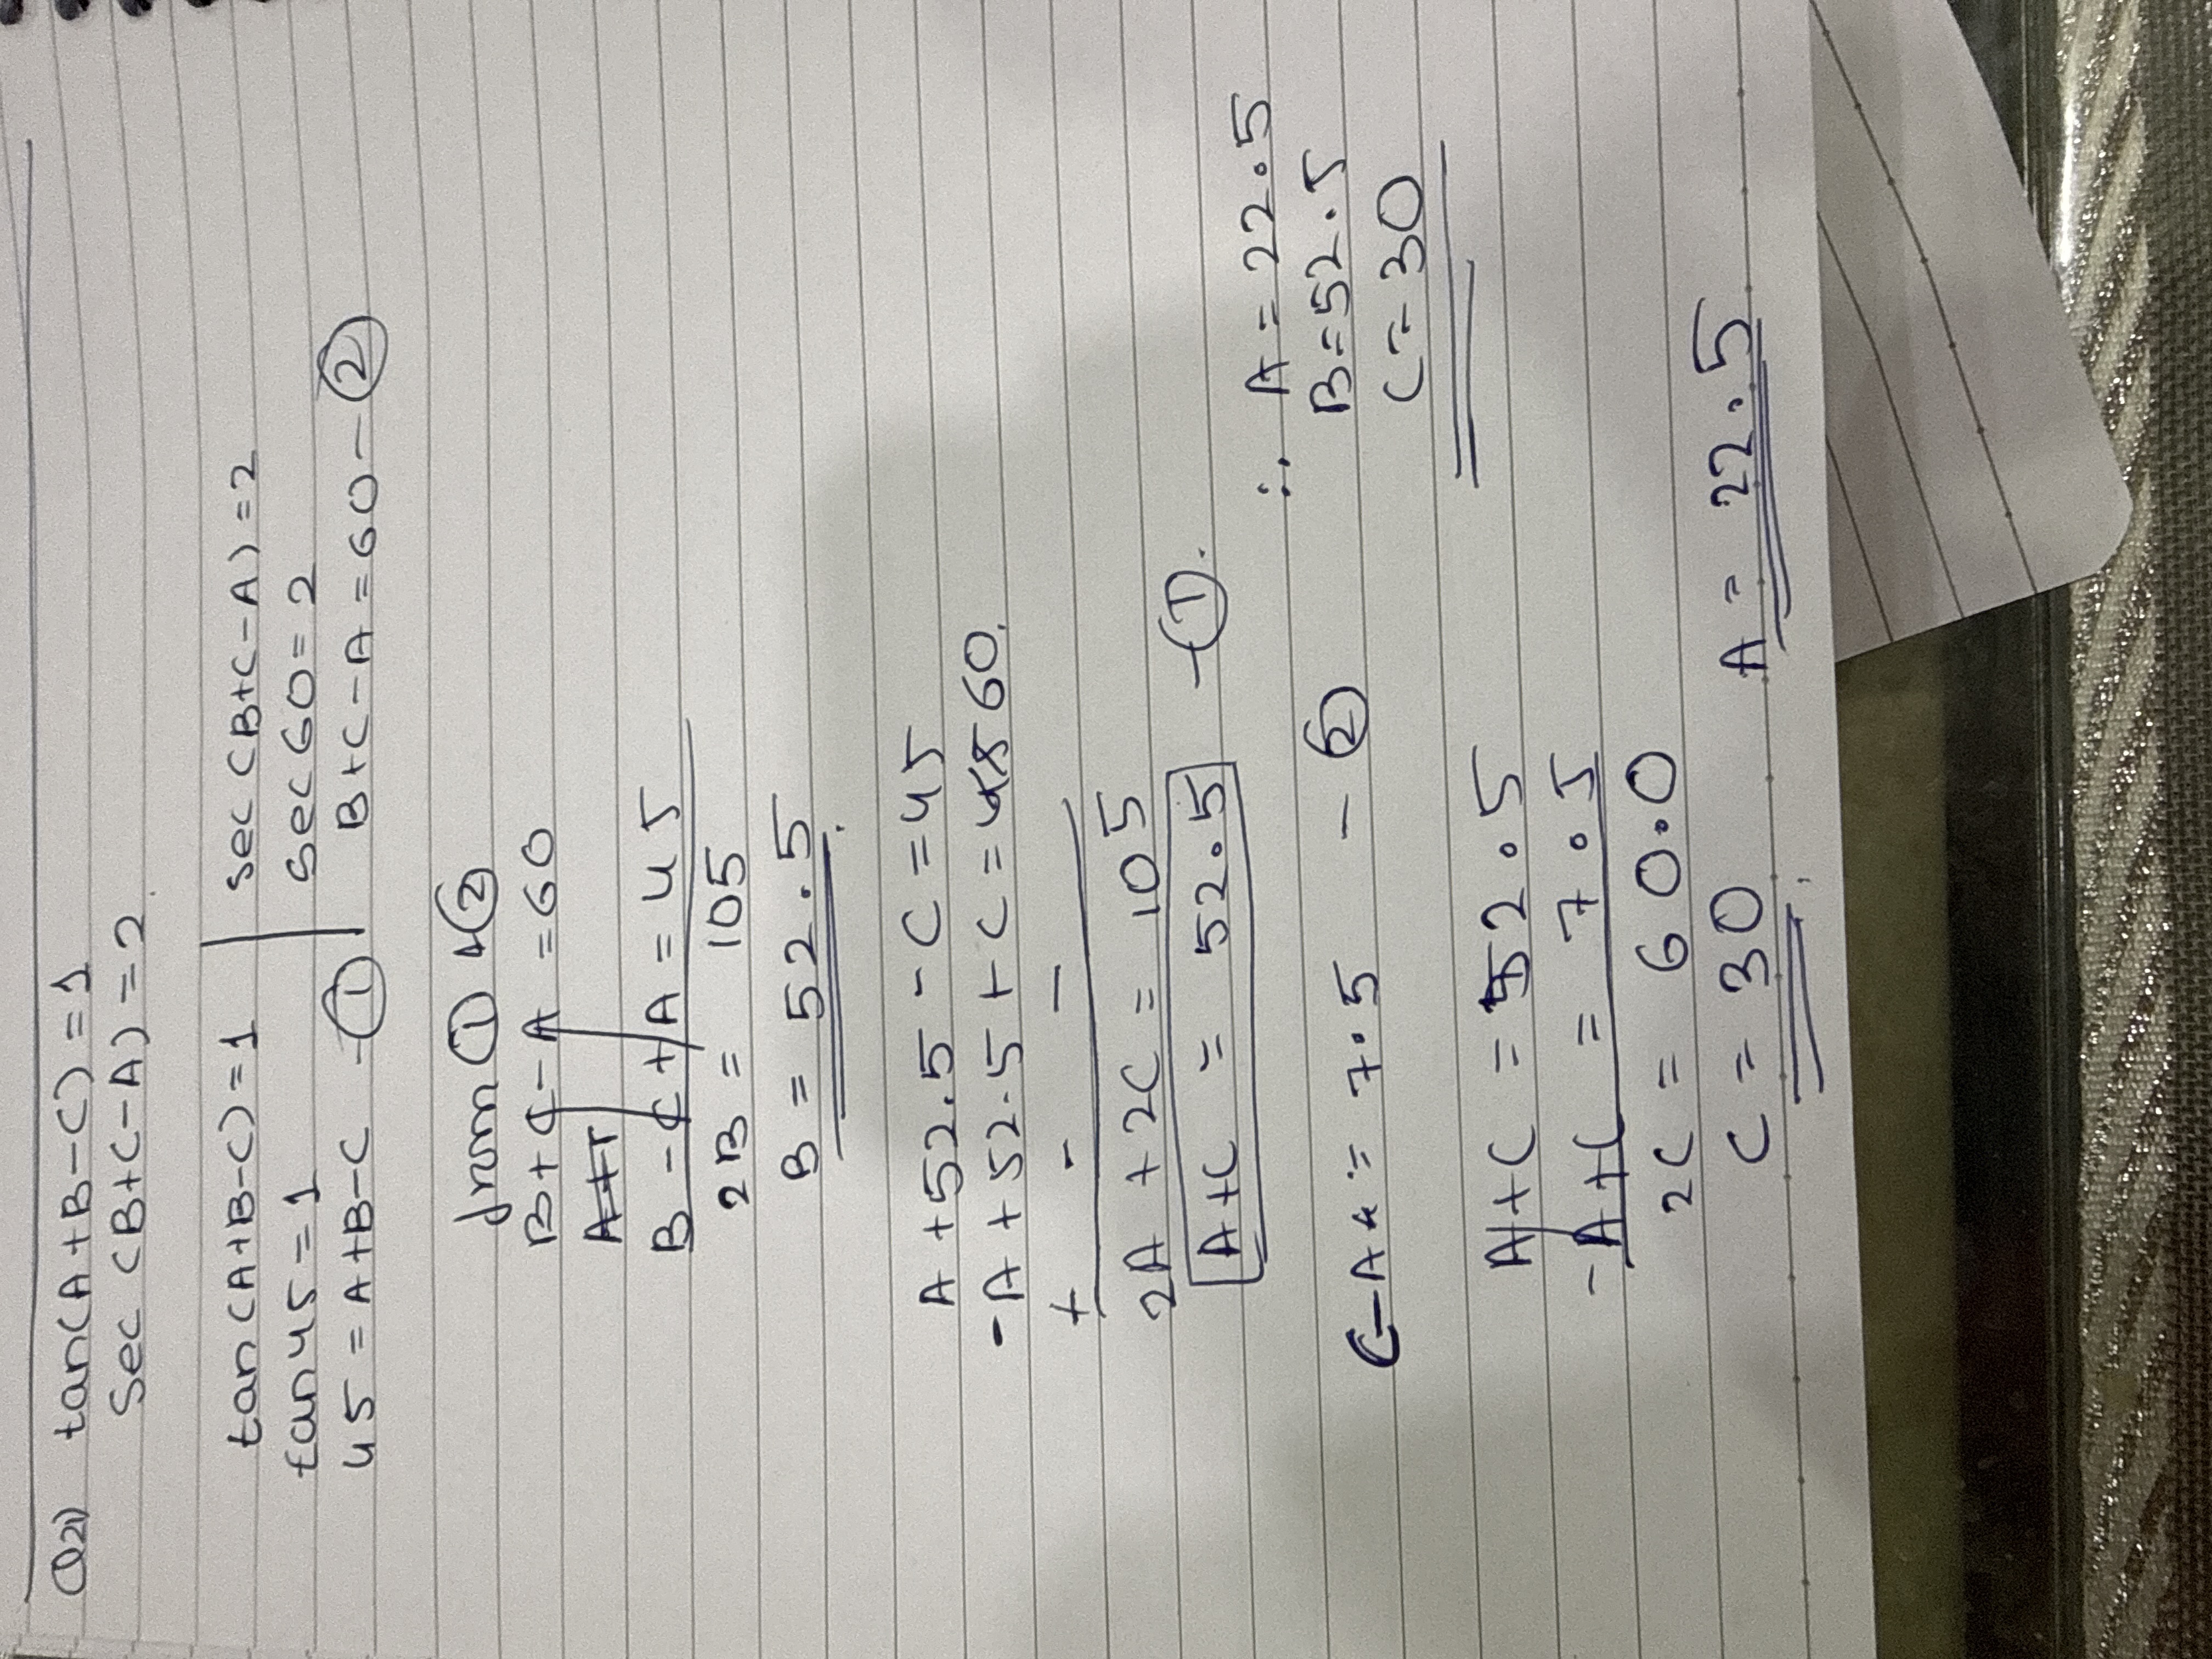 Q21) tan(A+B-C)=1
Sec (B+C-A)=2.
tan(A+B-C)=1
tan 45=1
45 = A+B-C -①
sec(B+C-A)=2
Sec 60=2
B+C-A=60-②
from ① & ②
B+C-A =60
A+
B-C+A=45
2B= 105
B=52.5
A+52.5-C=45
-A+52.5+C=45 60.
+ - -
2A+2C=105
A+C = 52.5 -①.
C-A = 7.5 -②
A+C = 52.5
-A+C = 7.5
2C = 60.0
C = 30
A= 22.5
∴ A=22.5
B=52.5
C=30